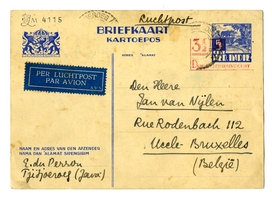 M 4115
Luchtpost
BRIEFKAART
KARTOEPOS
ADRES ALAMAT
PER LUCHTPOST
PAR AVION
Den Heere
Jan van Nijlen
Rue Rodenbach 112
Uccle-Bruxelles
(België)
NAAM EN ADRES VAN DEN AFZENDER
NAMA DAN ALAMAT SIPENGIRIM
E. du Perron
Tjitjoeroeg (Java)